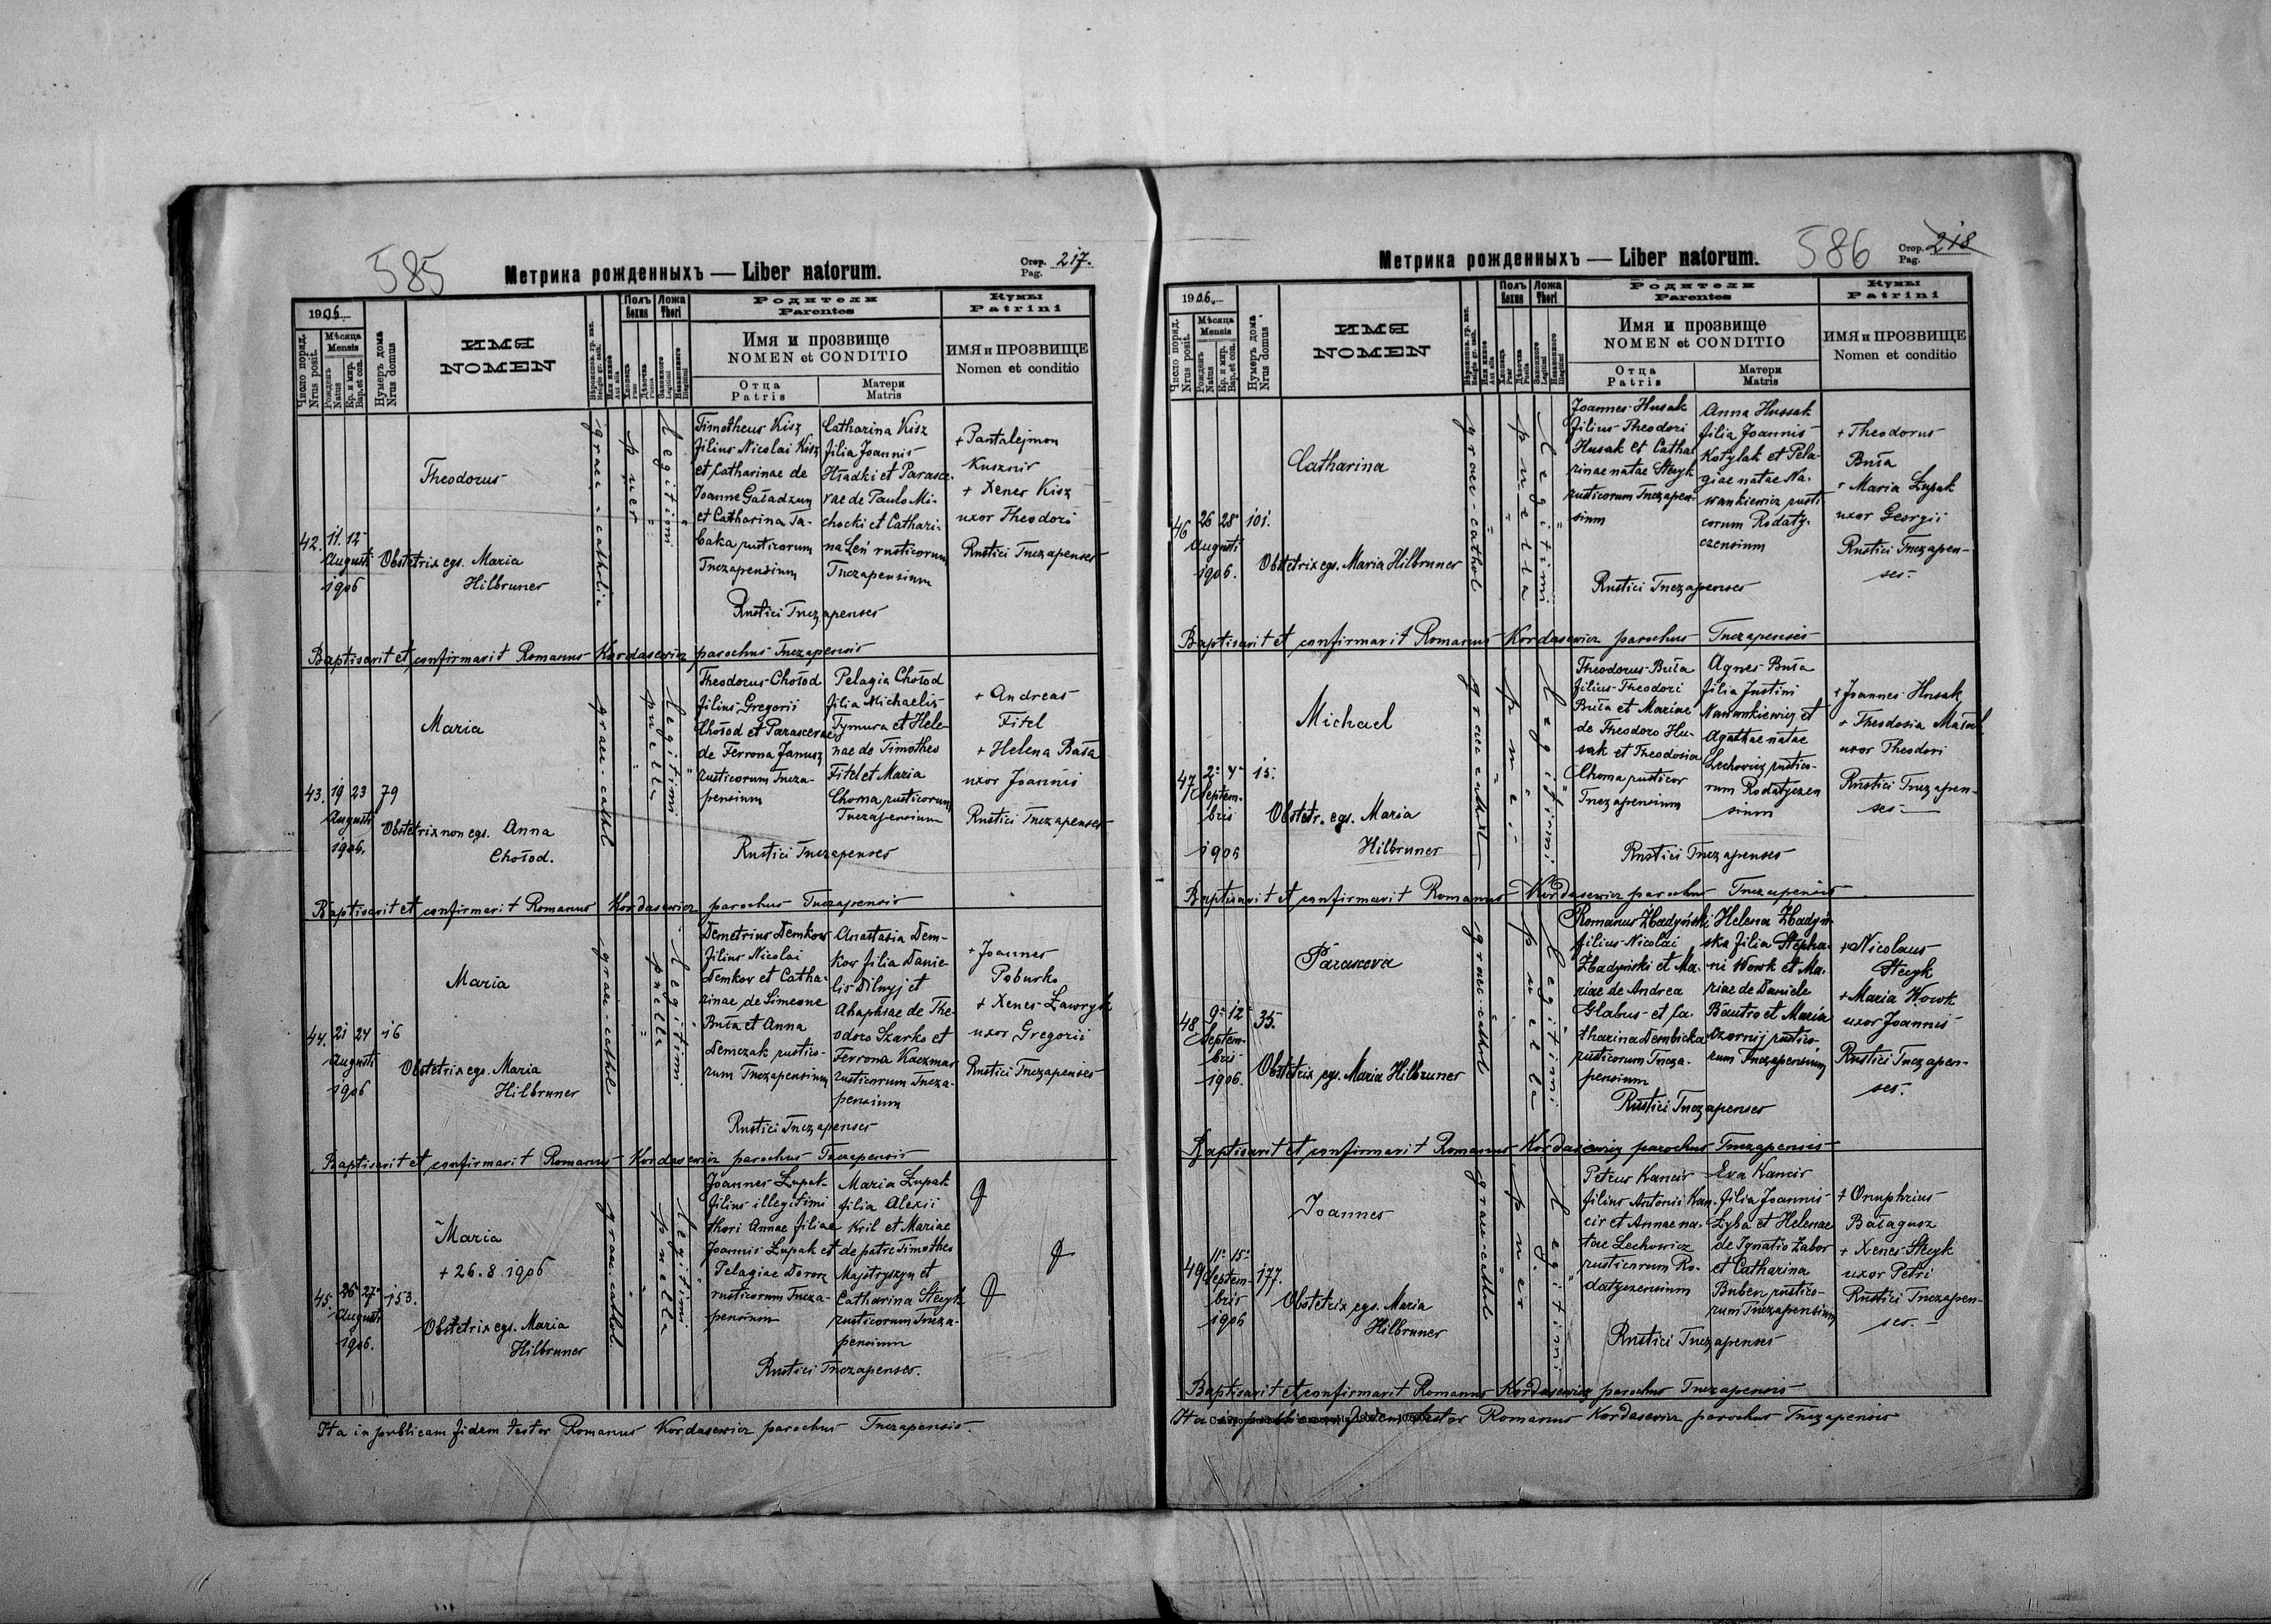 585
Метрика рожденныхъ — Liber natorum.
Стор. 217.
Pag.
1906
Число поряд.
Nrus posit.
Мѣсяца
Mensis
Рожденъ
Natus
Кр. и мир.
Bap. et con.
Нумеръ дома
Nrus domus
ИМЯ
NOMEN
Полъ
Sexus
Ложа
Thori
Родители
Parentes
Имя и прозвище
NOMEN et CONDITIO
Отца
Patris
Матери
Matris
Кумы
Patrini
ИМЯ и ПРОЗВИЩЕ
Nomen et conditio
42. 11. 12
Augusti
1906
Theodorus
Obstetrix egs. Maria
Hilbruner
graec-cathol
puer
Legitimi
Timotheus Kisz
filius Nicolai Kisz
et Catharinae de
Joanne Gaładzun
et Catharina Ta-
baka rusticorum
Tuczapensium
Catharina Kisz
filia Joannis
Hładki et Parasce-
vae de Paulo Mi-
chocki et Cathari-
na Leń rusticorum
Tuczapensium
Rustici Tuczapenses
+ Pantalejmon
Kusznir
+ Xenes Kisz
uxor Theodori
Rustici Tuczapenses
Baptisavit et confirmavit Romanus Kordasewicz parochus Tuczapensis
43. 19 23 79
Augusti
1906.
Maria
Obstetrix non egs. Anna
Chołod.
graec-cathol
puella
Legitimi
Theodorus Chołod
filius Gregorii
Chołod et Parascevae
de Ferrona Janusz
rusticorum Tucza-
pensium
Pelagia Chołod
filia Michaelis
Tymura et Hele-
nae de Timotheo
Fitel et Maria
Choma rusticorum
Tuczapensium
Rustici Tuczapenses
+ Andreas
Fitel
+ Helena Bała
uxor Joannis
Rustici Tuczapenses
Baptisavit et confirmavit Romanus Kordasewicz parochus Tuczapensis
44. 21 24 16
Augusti
1906
Maria
Obstetrix egs. Maria
Hilbruner
graec-cathol
puella
Legitimi
Demetrius Demkow
filius Nicolai
Demkow et Catha-
rinae de Simeone
Buła et Anna
Demczak rustico-
rum Tuczapensium
Anastasia Dem-
kow filia Danie-
lis Dilnyj et
Ahaphiae de The-
odoro Szarko et
Ferrona Kaczmar
rusticorum Tucza-
pensium
Rustici Tuczapenses
+ Joannes
Poburko
+ Xenes Ławryk
uxor Gregorii
Rustici Tuczapenses
Baptisavit et confirmavit Romanus Kordasewicz parochus Tuczapensis
45. 26 27 153.
Augusti
1906.
Maria
+ 26.8.1906
Obstetrix egs. Maria
Hilbruner
graec-cathol.
puella
Legitimi
Joannes Łupak
filius illegitimi
thori Annae filiae
Joannis Łupak et
Pelagiae Dorosz
rusticorum Tucza-
pensium
Maria Łupak
filia Alexii
Kril et Mariae
de patre Timotheo
Majstryszyn et
Catharina Stecyk
rusticorum Tucza-
pensium
Rustici Tuczapenses.
Ita in publicam fidem testor Romanus Kordasewicz parochus Tuczapensis.
586
Метрика рожденныхъ — Liber natorum.
Стор. 218
Pag.
1906.
Число поряд.
Nrus posit.
Мѣсяца
Mensis
Рожденъ
Natus
Кр. и мир.
Bap. et con.
Нумеръ дома
Nrus domus
ИМЯ
NOMEN
Полъ
Sexus
Ложа
Thori
Родители
Parentes
Имя и прозвище
NOMEN et CONDITIO
Отца
Patris
Матери
Matris
Кумы
Patrini
ИМЯ и ПРОЗВИЩЕ
Nomen et conditio
46 26 28 101.
Augusti
1906.
Catharina
Obstetrix egs. Maria Hilbruner
graec-cathol
puella
Legitimi
Joannes Husak
filius Theodori
Husak et Catha-
rinae natae Stecyk
rusticorum Tuczapen-
sium
Anna Hussak
filia Joannis
Kotylak et Pela-
giae natae Na-
wankiewicz rusti
corum Rodaty-
czensium
Rustici Tuczapenses
+ Theodorus
Buła
+ Maria Łupak
uxor Georgii
Rustici Tuczapen-
ses.
Baptisavit et confirmavit Romanus Kordasewicz parochus Tuczapensis
47 2 4 15.
Septem-
bris
1906
Michael
Obstetr. egs. Maria
Hilbruner
graec cathol
puer
Legitimi
Theodorus Buła
filius Theodori
Buła et Mariae
de Theodoro Hu-
sak et Theodosia
Choma rusticor
Tuczapensium
Agnes Buła
filia Justini
Nawankiewicz et
Agathae natae
Lechowicz rustico-
rum Rodatyczen
sium
Rustici Tuczapenses
+ Joannes Husak
+ Theodosia
uxor Theodori
Rustici Tuczapen-
ses
Baptisavit et confirmavit Romanus Kordasewicz parochus Tuczapensis
48 9 12 35.
Septem-
bris
1906.
Parasceva
Obstetrix egs. Maria Hilbruner
graec-cathol
puella
Legitimi
Romanus Zbadyński
filius Nicolai
Zbadyński et Ma-
riae de Andrea
Glabus et Ca-
tharina Dembicka
rusticorum Tucza-
pensium
Helena Zbadyń
ska filia Stepha-
ni Wowk et Ma-
riae de Daniele
Bautro et Maria
Czornij rustico-
rum Tuczapensium
Rustici Tuczapenses
+ Nicolaus
Stecyk
+ Maria Wowk
uxor Joannis
Rustici Tuczapen-
ses.
Baptisavit et confirmavit Romanus Kordasewicz parochus Tuczapensis
49 11 15 177.
Septem-
bris
1906
Joannes
Obstetrix egs. Maria
Hilbruner
graec-cathol
puer
Legitimi
Petrus Kancir
filius Antonii Kan-
cir et Annae na-
tae Lechowicz
rusticorum Ro-
datyczensium
Eva Kancir
filia Joannis
Łyba et Helenae
de Ignatio Zabor
et Catharina
Buben rustico-
rum Tuczapensium
Rustici Tuczapenses
+ Onuphrius
Bałagusz
+ Xenes Stecyk
uxor Petri
Rustici Tuczapen-
ses.
Baptisavit et confirmavit Romanus Kordasewicz parochus Tuczapensis
Ita fidem testor Romanus Kordasewicz parochus Tuczapensis